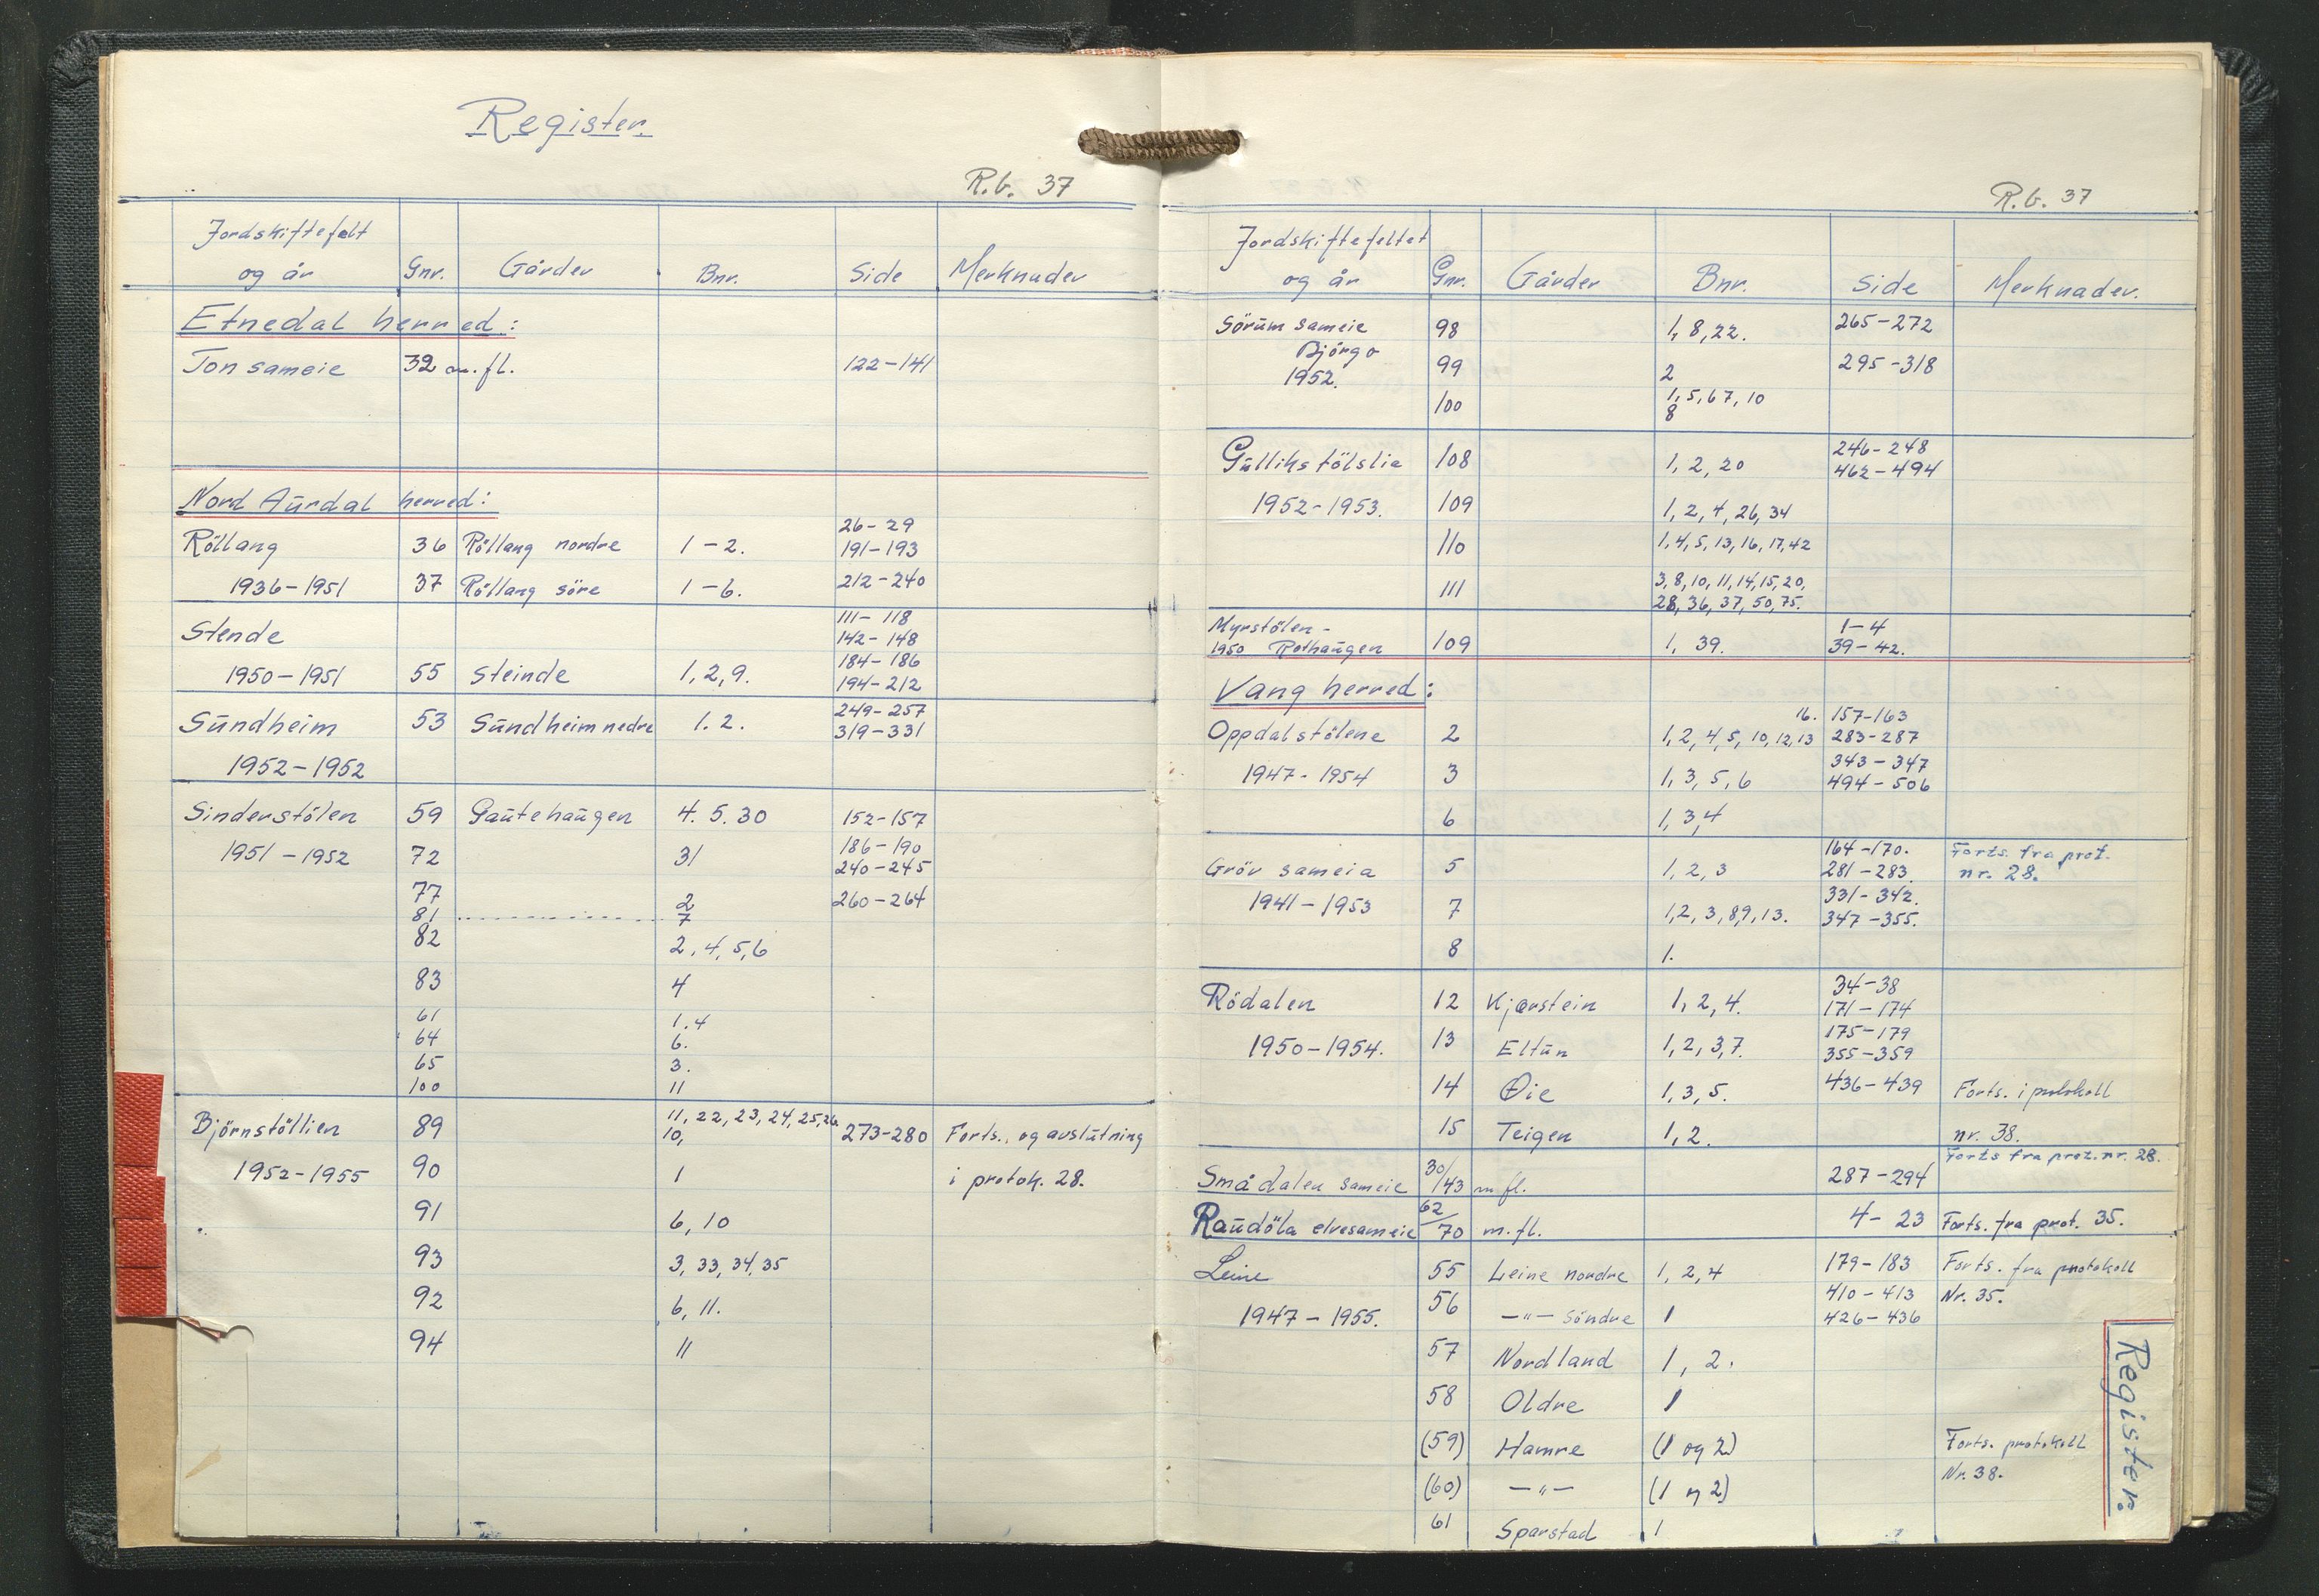 Register.
R.b. 37
Jordskiftefelt
og år Gnr. Gårder Bnr. Side Merknader
Etnedal herred:
Ton sameie 32 m.fl. 122-141
Nord Aurdal herred:
26-29
Röllang 36 Röllang nordre 1-2. 191-193
1936-1951 37 Röllang söre 1-6. 212-240
111-118
Stende 142-148
184-186
1950-1951 55 Steinde 1,2,9. 194-212
249-257
Sundheim 53 Sundheim nedre 1.2. 319-331
1952-1952
Sinderstölen 59 Gautehaugen 4. 5. 30 152-157
186-190
1951-1952 72 31 240-245
77 2 260-264
81 7
82 2, 4, 5, 6
83 4
61 1.4
64 6.
65 3.
100 11
11, 22, 23, 24, 25, 26
Björnstöllien 89 10, 273-280 Forts., og avslutning
1952-1955 90 1 i protok. 28.
91 6, 10
93 3, 33, 34, 35
92 6, 11.
94 11
R.b. 37
Jordskiftefeltet
og år Gnr. Gårder Bnr. Side Merknader.
Sörum sameie 98 1, 8, 22. 265-272
Björgo
1952. 99 2 295-318
100 1, 5, 6 7, 10
8
246-248
Gullikstölslia 108 1, 2, 20 462-494
1952-1953. 109 1, 2, 4, 26, 34
110 1, 4, 5, 13, 16, 17, 42
111 3, 8, 10, 11, 14, 15, 20,
28, 36, 37, 50, 75.
Myrstölen - 1-4
1950 Rothaugen 109 1, 39. 39-42.
Vang herred:
16. 157-163
Oppdalstölene 2 1, 2, 4, 5, 10, 12, 13 283-287
343-347
1947-1954 3 1, 3, 5, 6 494-506
6 1, 3, 4
164-170. Forts. fra prot.
Gröv sameia 5 1, 2, 3 281-283. nr. 28.
331-342.
1941-1953 7 1, 2, 3, 8, 9, 13. 347-355.
8 1.
34-38
Rödalen 12 Kjørstein 1, 2, 4. 171-174
175-179
1950-1954. 13 Eltun 1, 2, 3, 7. 355-359
14 Øie 1, 3, 5. 436-439 Forts. i protokoll
15 Teigen 1, 2. nr. 38.
Forts fra prot. nr. 28.
Smådalen sameie 30/43 m fl. 287-294
Raudöla elvesameie 62/70 m.fl. 4-23 Forts. fra prot. 35.
Leine 55 Leine nordre 1, 2, 4 179-183 Forts. fra protokoll
56 410-413 Nr. 35.
1947-1955. -"- Söndre 1 426-436
57 Nordland 1, 2.
58 Oldre 1
(59) Hamre (1 og 2) Forts. protokoll
Nr. 38.
(60) -"- (1 og 2)
61 Sparstad 1
Register.